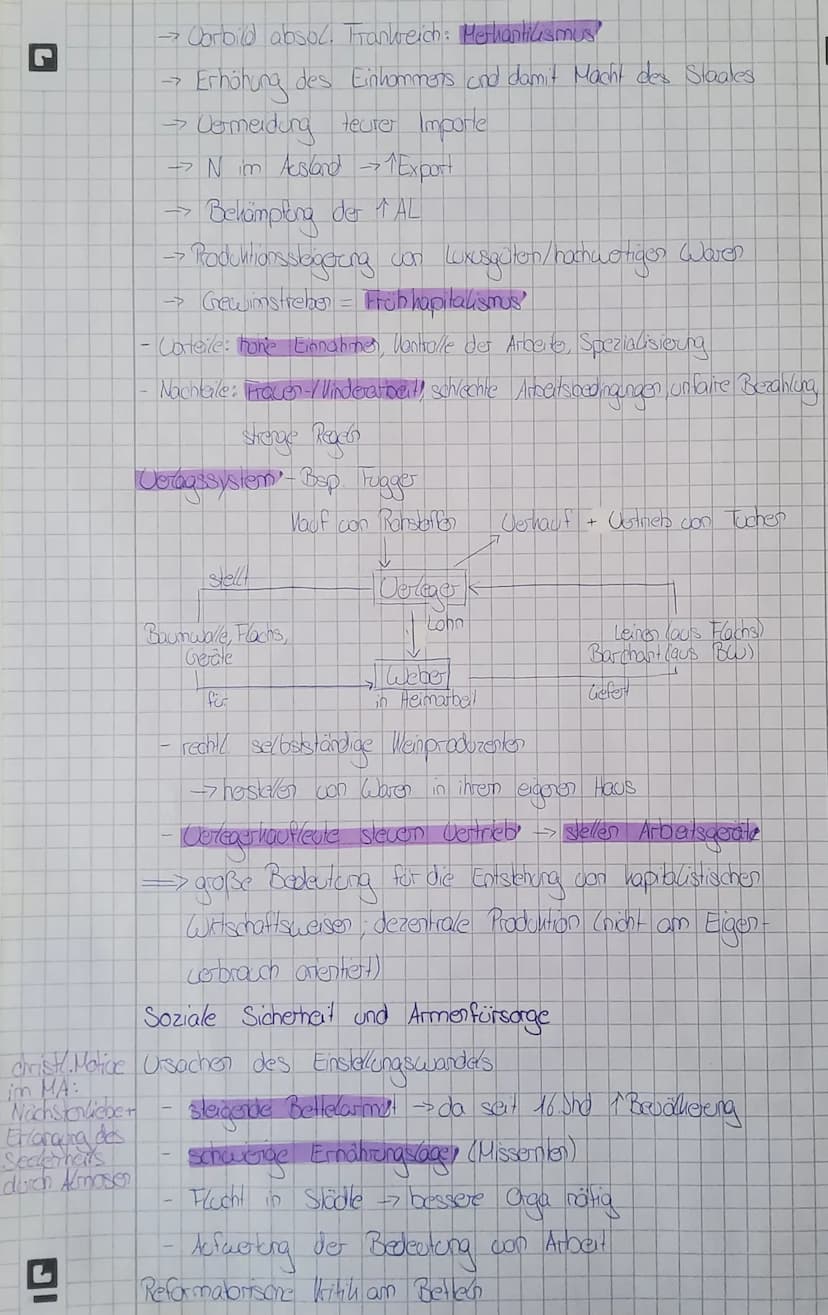 → Vorbild absol. Frankreich: Merkantilismus
→ Erhöhung des Einkommens und damit Macht des Staates
→ Vermeidung teurer Importe
→ N im Ausland → ↑Export
→ Bekämpfung der ↑ AL
→ Produktionssteigerung von Luxusgütern/hochwertigen Waren
→ Gewinnstreben = Frühkapitalismus
- Vorteile: hohe Einnahmen, Kontrolle der Arbeiter, Spezialisierung
- Nachteile: Frauen-/Kinderarbeit, schlechte Arbeitsbedingungen, unfaire Bezahlung,
strenge Regeln
Verlagssystem - Bsp. Fugger
Kauf von Rohstoffen
Verkauf + Vertrieb von Tuchen
stellt
Verleger
Lohn
Baumwolle, Flachs,
Geräte
Leinen (aus Flachs)
Barchant (aus BW)
Weber
für
in Heimarbeit
liefert
- rechtl. selbstständige Kleinproduzenten
→ herstellen von Waren in ihrem eigenen Haus
- Verlegerkaufleute steuern Vertrieb → stellen Arbeitsgeräte
⇒ große Bedeutung für die Entstehung von kapitalistischen
Wirtschaftsweisen; dezentrale Produktion (nicht am Eigen-
verbrauch orientiert)
Soziale Sicherheit und Armenfürsorge
christl. Motive
im MA:
Nächstenliebe +
Erlangung des
Seelenheils
durch Almosen
Ursachen des Einstellungswandels
- steigende Bettelarmut → da seit 16. Jhd ↑ Bevölkerung
- schwierige Ernährungslage (Missernten)
- Flucht in Städte → bessere Orga nötig
- Aufwertung der Bedeutung von Arbeit
Reformatorische Kritik am Betteln